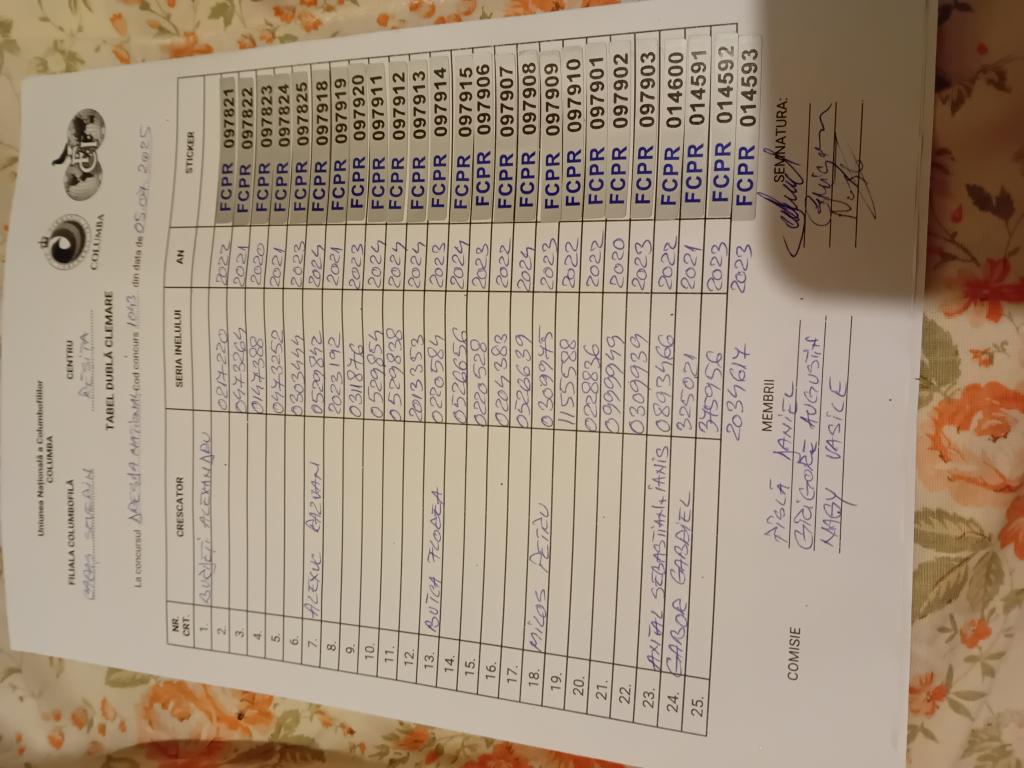 Uniunea Națională a Columbofililor
COLUMBA
FILIALA COLUMBOFILĂ CARAȘ SEVERIN CENTRU REȘIȚA COLUMBA
FCI
TABEL DUBLĂ CLEMARE
La concursul Cod concurs 1043 din data de 05.04.2025
NR. CRT. CRESCATOR SERIA INELULUI AN STICKER
1. ALEXANDRU
2. 0217220 2022 FCPR 097821
3. 0473264 2021 FCPR 097822
4. 0147388 2020 FCPR 097823
5. 0473252 2021 FCPR 097824
6. 0303444 2023 FCPR 097825
7. ALEXUC RAZVAN 0520842 2024 FCPR 097918
8. 2023192 2021 FCPR 097919
9. 0311876 2023 FCPR 097920
10. 0529854 2024 FCPR 097911
11. 0529838 2024 FCPR 097912
12. 2013353 2024 FCPR 097913
13. BUTCA FLOREA 0220584 2023 FCPR 097914
14. 0526656 2024 FCPR 097915
15. 0220528 2023 FCPR 097906
16. 0204383 2022 FCPR 097907
17. 0526639 2024 FCPR 097908
18. MILOS PETRU 0309975 2023 FCPR 097909
19. 1155588 2022 FCPR 097910
20. 0228836 2022 FCPR 097901
21. 0999949 2020 FCPR 097902
22. 0309939 2023 FCPR 097903
23. ANTAL SEBASTIAN+IANIS 0893466 2022 FCPR 014600
24. GABOR GABRIEL 325021 2021 FCPR 014591
25. 375956 2023 FCPR 014592
2034617 2023 FCPR 014593
COMISIE MEMBRII SEMNATURA:
PÎSLĂ DANIEL
GRIGORE AUGUSTIN
NAGY VASILE